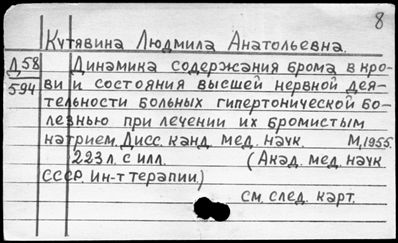 8
Кутявина Людмила Анатольевна.
Д58 Динамика содержания брома в кро-
594 ви и состояния высшей нервной дея-
тельности больных гипертонической бо-
лезнью при лечении их бромистым
натрием. Дисс. канд. мед. наук. М, 1955.
223 л. с илл. (Акад. мед. наук
СССР. Ин-т терапии.)
см. след. карт.